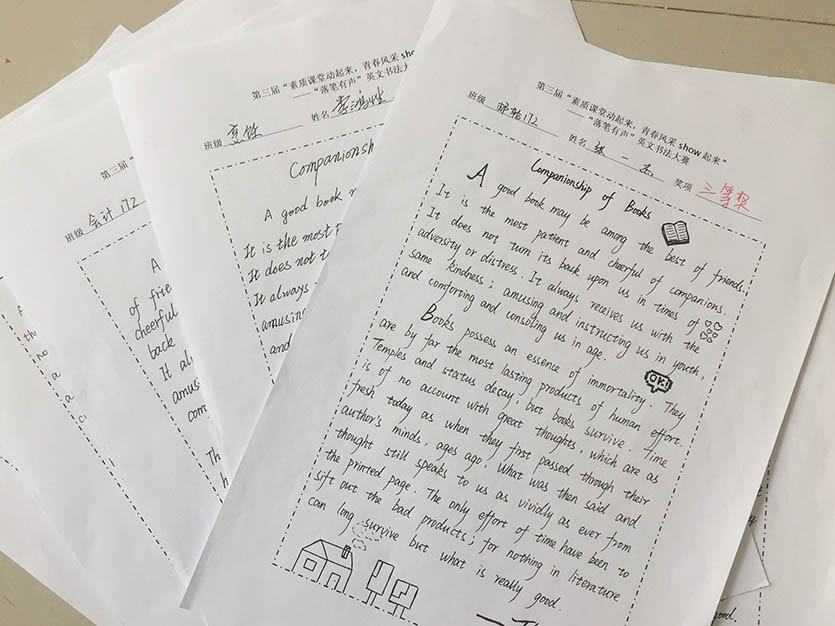 第三届“
班级 会计172
A
of frie
cheerful
back
It al
amus
com
Th
第三届“素质课堂动起来，青春风采 sho
——“落笔有声”英文书法大赛
班级 烹饪 姓名 李
Companionsh
A good book
It is the most
It does not t
It always
amusing
and
第三届“素质课堂动起来，青春风采 show 起来”
——“落笔有声”英文书法大赛
班级 172 姓名 张一 奖项 三等奖
Companionship of Books
A good book may be among the best of friends.
It is the most patient and cheerful of companions.
It does not turn its back upon us in times of
adversity or distress. It always receives us with the
same kindness; amusing and instructing us in youth,
and comforting and consoling us in age.
Books possess an essence of immortality. They
are by far the most lasting products of human effort.
Temples and status decay, but books survive. Time
is of no account with great thoughts, which are as
fresh today as when they first passed through their
author's minds, ages ago. What was then said and
thought still speaks to us as vividly as ever from
the printed page. The only effort of time have been to
sift out the bad products; for nothing in literature
can long survive but what is really good.
OK!
good.